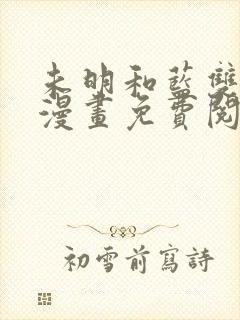 未明和藍雙
漫畫免費閱
初雪前寫詩